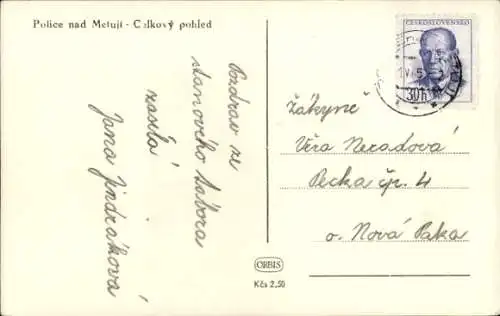 Police nad Metují - Celkový pohled
Pozdrav ze
stanového tábora
zasílá
Jana Jindráková
ČESKOSLOVENSKO
30 h
Žákyně
Věra Neradová
Pecka čp. 4
o. Nová Paka
ORBIS
Kčs 2,50